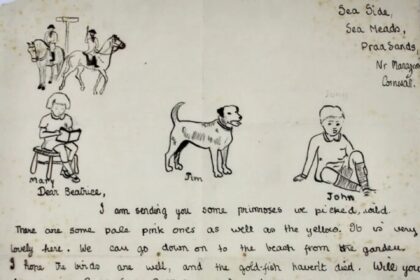 Sea Side,
Sea Meads,
Praa Sands,
Nr Marazion
Cornwall.
John
Mary
Jim
John
Dear Beatrice,
I am sending you some primroses we picked, wild.
There are some pale pink ones as well as the yellow. It is very
lovely here. We can go down on to the beach from the garden.
I hope the birds are well, and the gold-fish haven't died. Will you